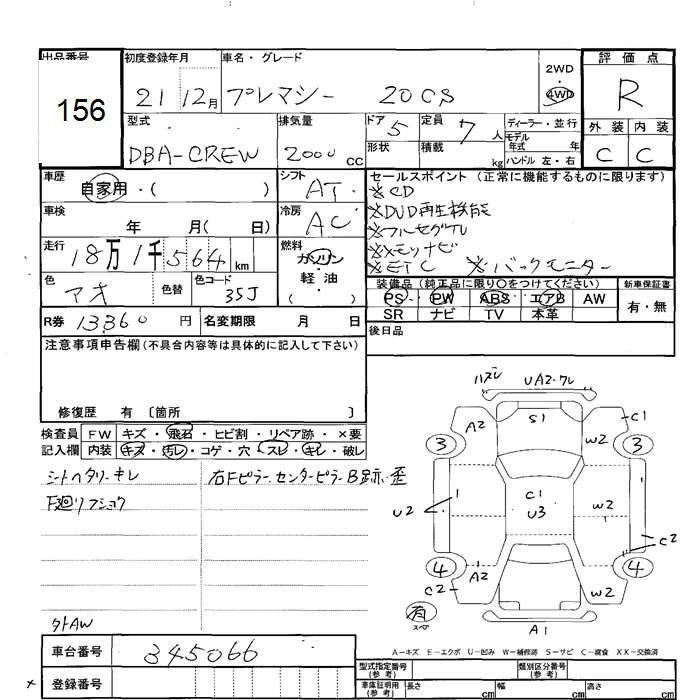 出品番号
156
初度登録年月
21 12月
車名・グレード
プレマシー 20CS
2WD
4WD
評価点
R
外装 内装
C C
型式
DBA-CREW
排気量
2000 CC
ドア 5
形状
定員 7 人
積載 kg
ディーラー・並行
モデル
年式 年
ハンドル 左・右
車歴
自家用・( )
シフト
AT
セールスポイント (正常に機能するものに限ります)
※CD
※DVD再生機能
※フルセグTV
※メモリナビ
※ETC ※バックモニター
車検
年 月( 日)
冷房
AC
走行
18万1千564 km
燃料
ガソリン
軽・油
( )
色
アオ
色替
色コード
35J
装備品 (純正品に限り○をつけてください)
PS PW ABS エアB AW
SR ナビ TV 本革
新車保証書
有・無
R券 13360 円
名変期限 月 日
後日品
注意事項申告欄(不具合内容等は具体的に記入して下さい)
修復歴 有 〔箇所 〕
検査員 FW キズ・飛石・ヒビ割・リペア跡・×要
記入欄 内装 キズ・汚レ・コゲ・穴・スレ・キレ・破レ
シートヘタリ・キレ
右Fピラー、センターピラーB跡・歪
F廻リフショク
外AW
ハズレ UA2・ワレ
A2 S1 C1
3 W2 3
C1
U2 U3 W2
C2
4 A2 4
C2 W2
有
スペア
A1
A−キズ E−エクボ U−凹み W−補修跡 S−サビ C−腐食 XX−交換済
車台番号 345066
登録番号
型式指定番号
(参考)
類別区分番号
(参考)
車庫証明用
(参考)
長さ cm 幅 cm 高さ cm